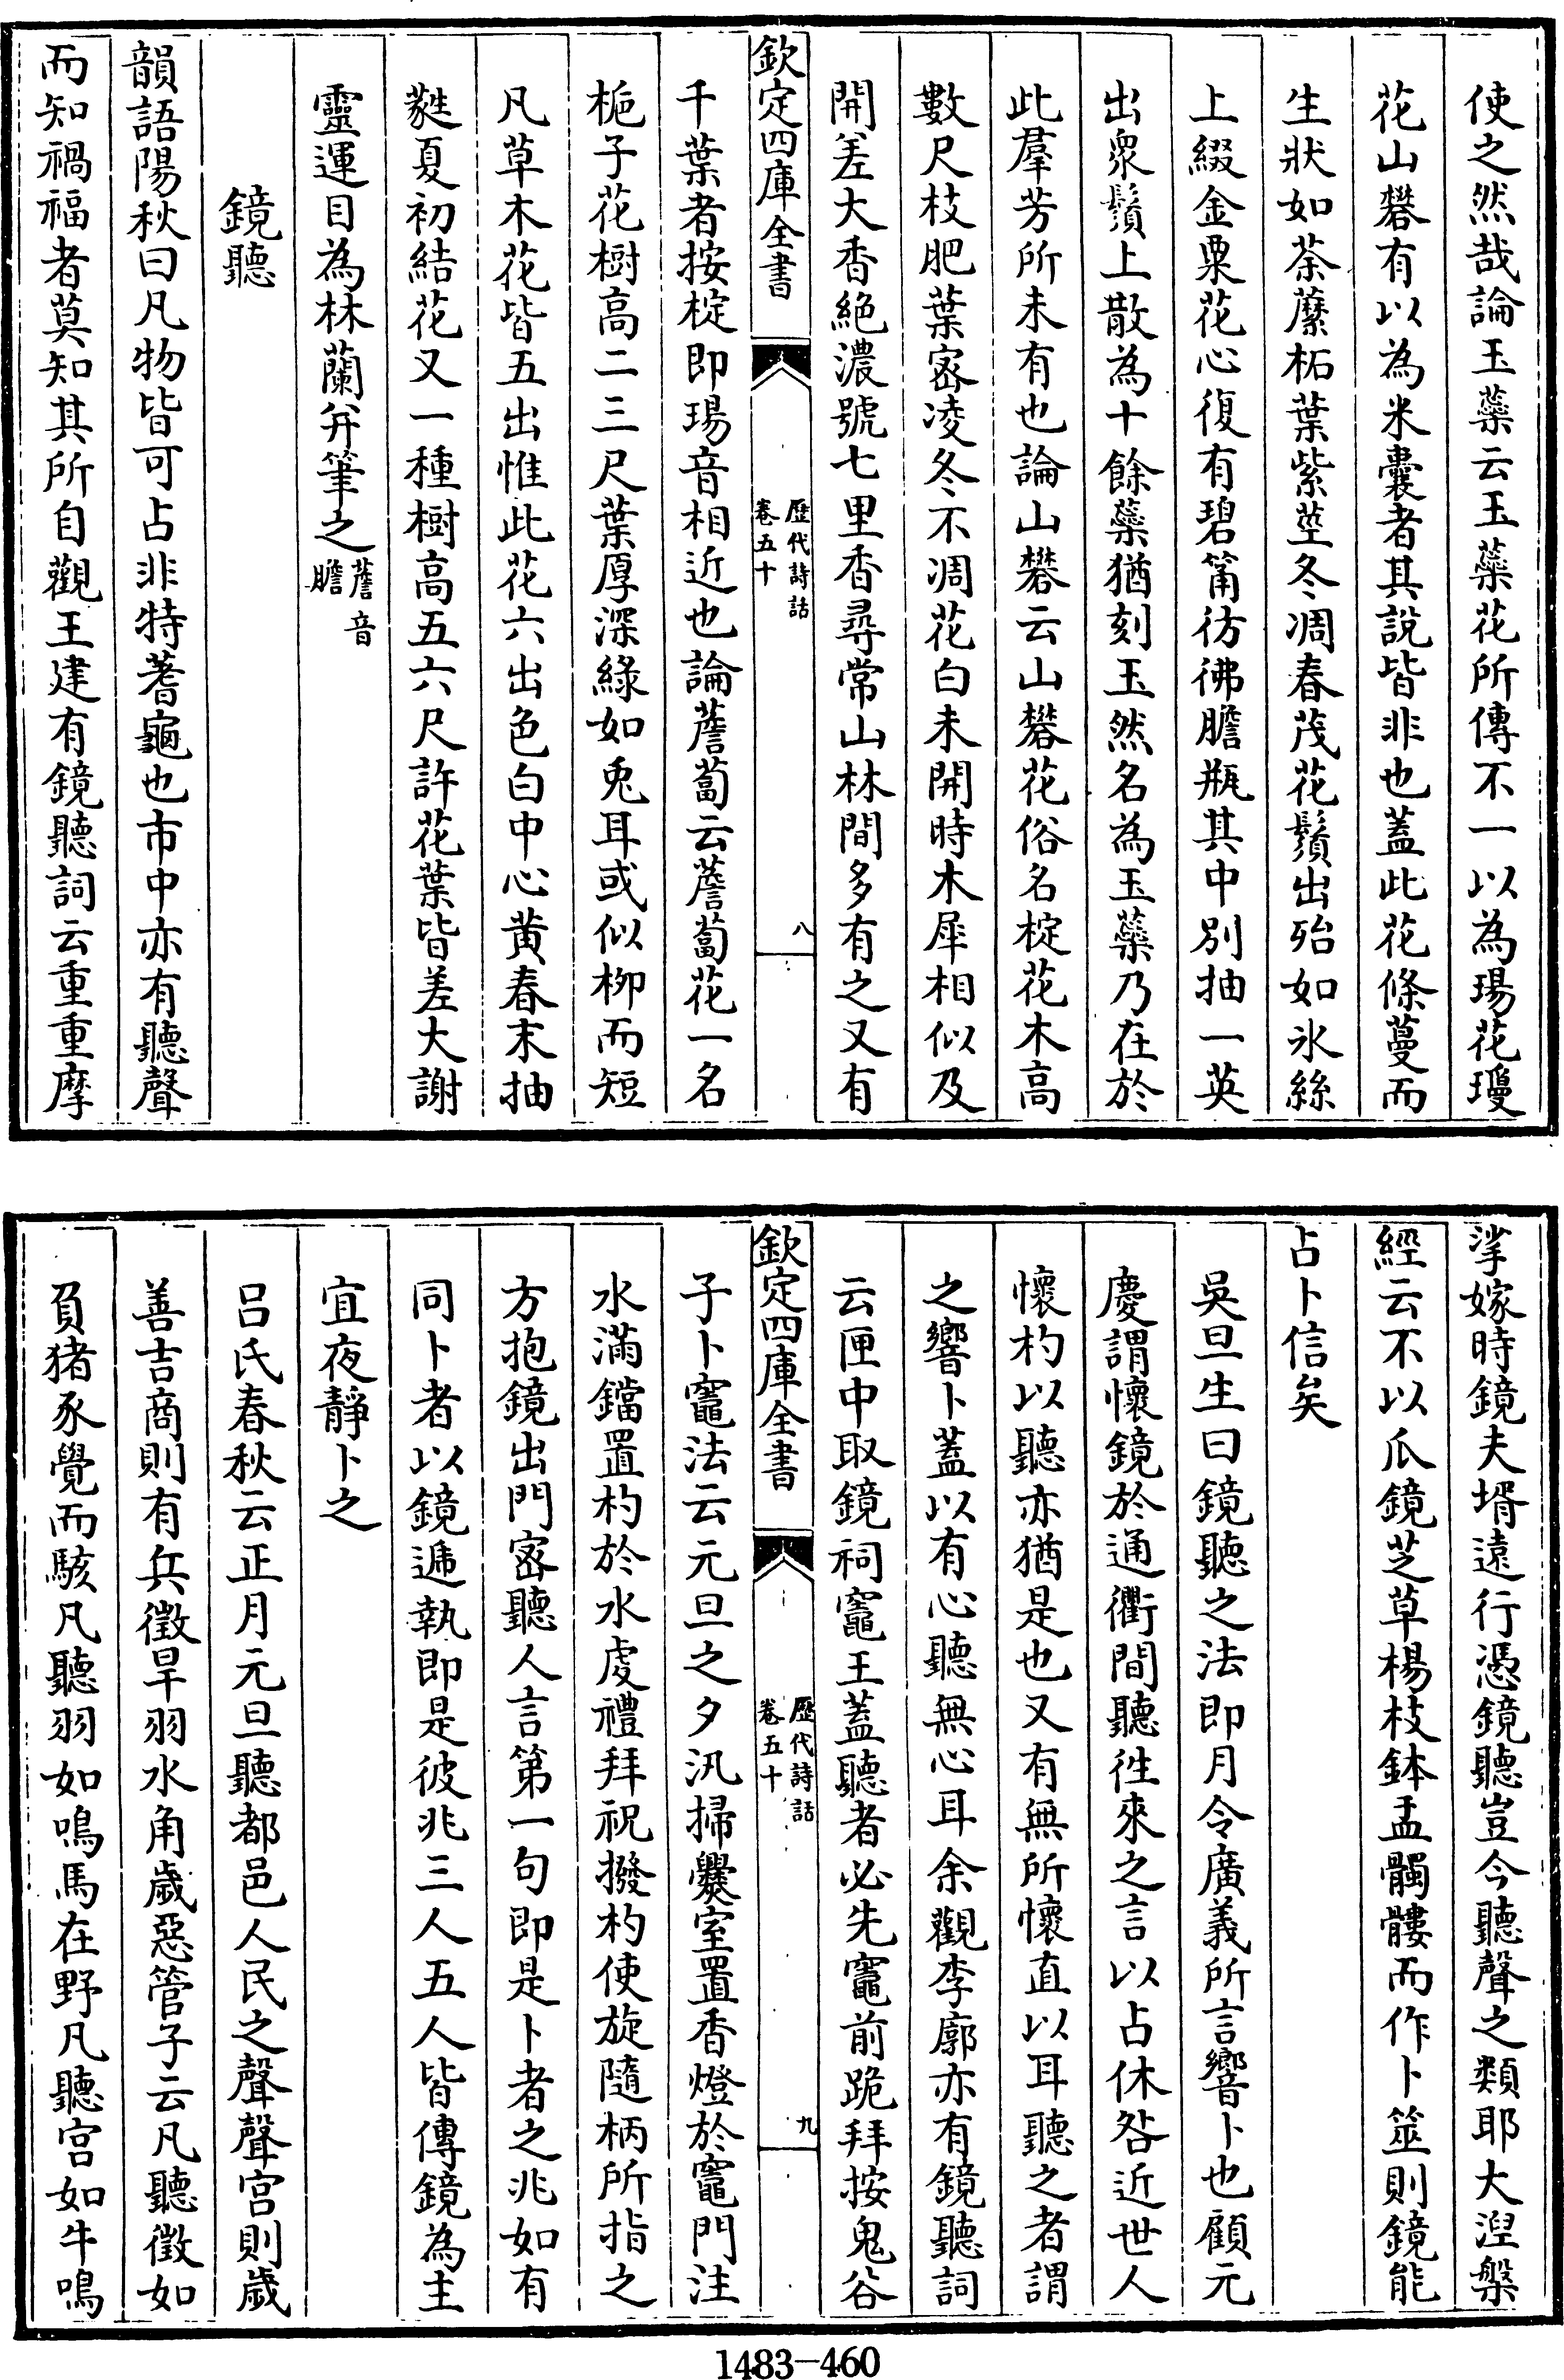 使之然哉論玉蘂云玉蘂花所傳不一以為瑒花瓊
花山礬有以為米囊者其說皆非也蓋此花條蔓而
生狀如荼䕷柘葉紫莖冬凋春茂花鬚出殆如氷絲
上綴金粟花心復有碧筩彷彿膽瓶其中別抽一英
出衆鬚上散為十餘蘂猶刻玉然名為玉蘂乃在於
此羣芳所未有也論山礬云山礬花俗名椗花木高
數尺枝肥葉宻凌冬不凋花白未開時木犀相似及
開差大香絶濃號七里香尋常山林間多有之又有
欽定四庫全書
歴代詩話
卷五十
八
千葉者按椗即瑒音相近也論薝蔔云薝蔔花一名
梔子花樹高二三尺葉厚深綠如兎耳或似柳而短
凡草木花皆五出惟此花六出色白中心黄春末抽
蕤夏初結花又一種樹高五六尺許花葉皆差大謝
靈運目為林蘭并筆之薝音
膽
鏡聽
韻語陽秋曰凡物皆可占非特蓍龜也市中亦有聽聲
而知禍福者莫知其所自觀王建有鏡聽詞云重重摩
挲嫁時鏡夫壻遠行憑鏡聽豈今聽聲之類耶大涅槃
經云不以爪鏡芝草楊枝鉢盂髑髏而作卜筮則鏡能
占卜信矣
吳旦生曰鏡聽之法即月令廣義所言響卜也顧元
慶謂懷鏡於通衢間聽徃來之言以占休咎近世人
懷杓以聽亦猶是也又有無所懷直以耳聽之者謂
之響卜蓋以有心聽無心耳余觀李廓亦有鏡聽詞
云匣中取鏡祠竈王蓋聽者必先竈前跪拜按鬼谷
欽定四庫全書
歴代詩話
卷五十
九
子卜竈法云元旦之夕汛掃爨室置香燈於竈門注
水滿鐺置杓於水䖏禮拜祝撥杓使旋隨柄所指之
方抱鏡出門宻聽人言第一句即是卜者之兆如有
同卜者以鏡遞執即是彼兆三人五人皆傳鏡為主
宜夜靜卜之
吕氏春秋云正月元旦聽都邑人民之聲聲宫則歲
善吉商則有兵徵旱羽水角歲惡管子云凡聽徵如
負猪豕覺而駭凡聽羽如鳴馬在野凡聽宫如牛鳴
1483-460